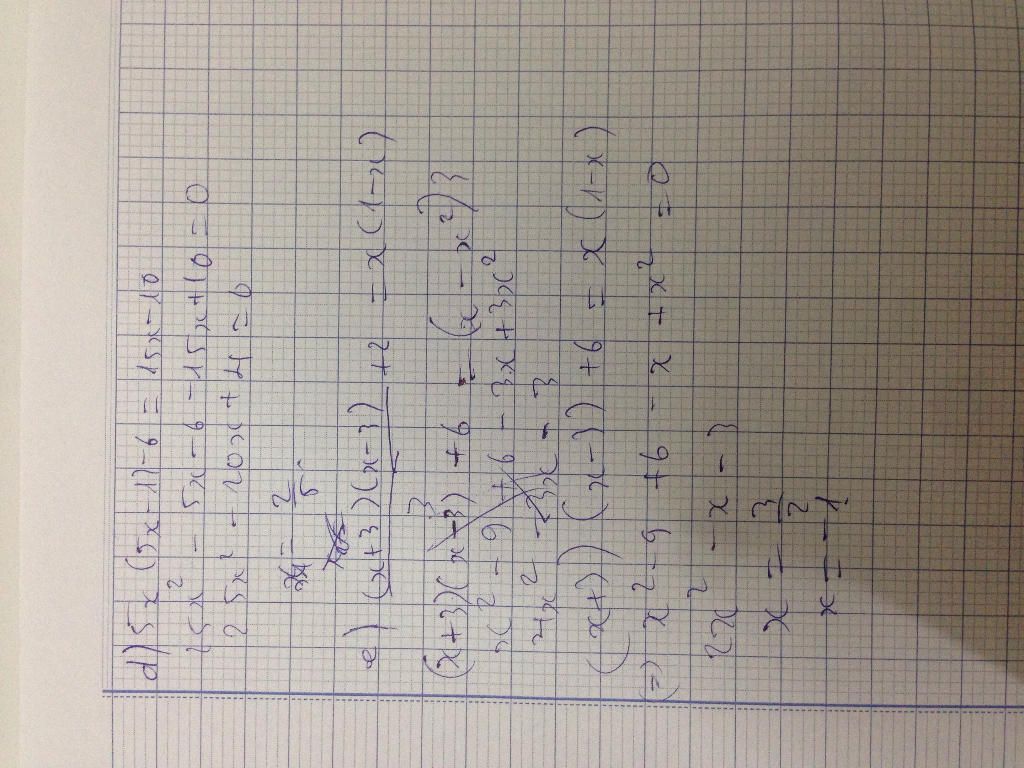 d) 5x(5x-1)-6 = 15x-10
25x² - 5x-6-15x+10=0
25x² - 20x+4=0
x = 2/5
e) (x+3)(x-3)/3 +2 = x(1-x)
(x+3)(x-3) +6 = (x-x²)3
x²-9 +6-3x+3x²
4x² - 3x - 3
(x+3) (x-3) +6 = x(1-x)
(=) x²-9 +6 -x +x² =0
2x² -x -3
x = 3/2
x = -1